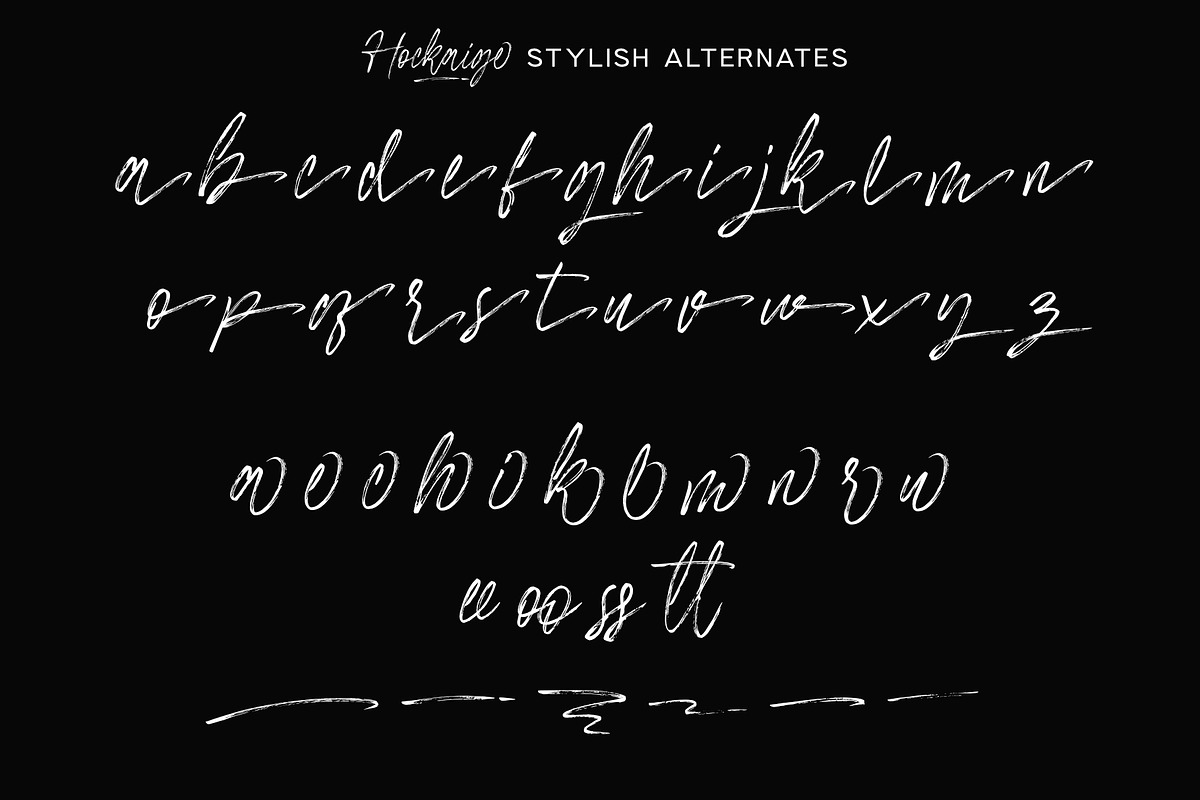 Hocknige STYLISH ALTERNATES
a b c d e f g h i j k l m n
o p q r s t u v w x y z
a e c h i k l m n r u
ee oo ss tt